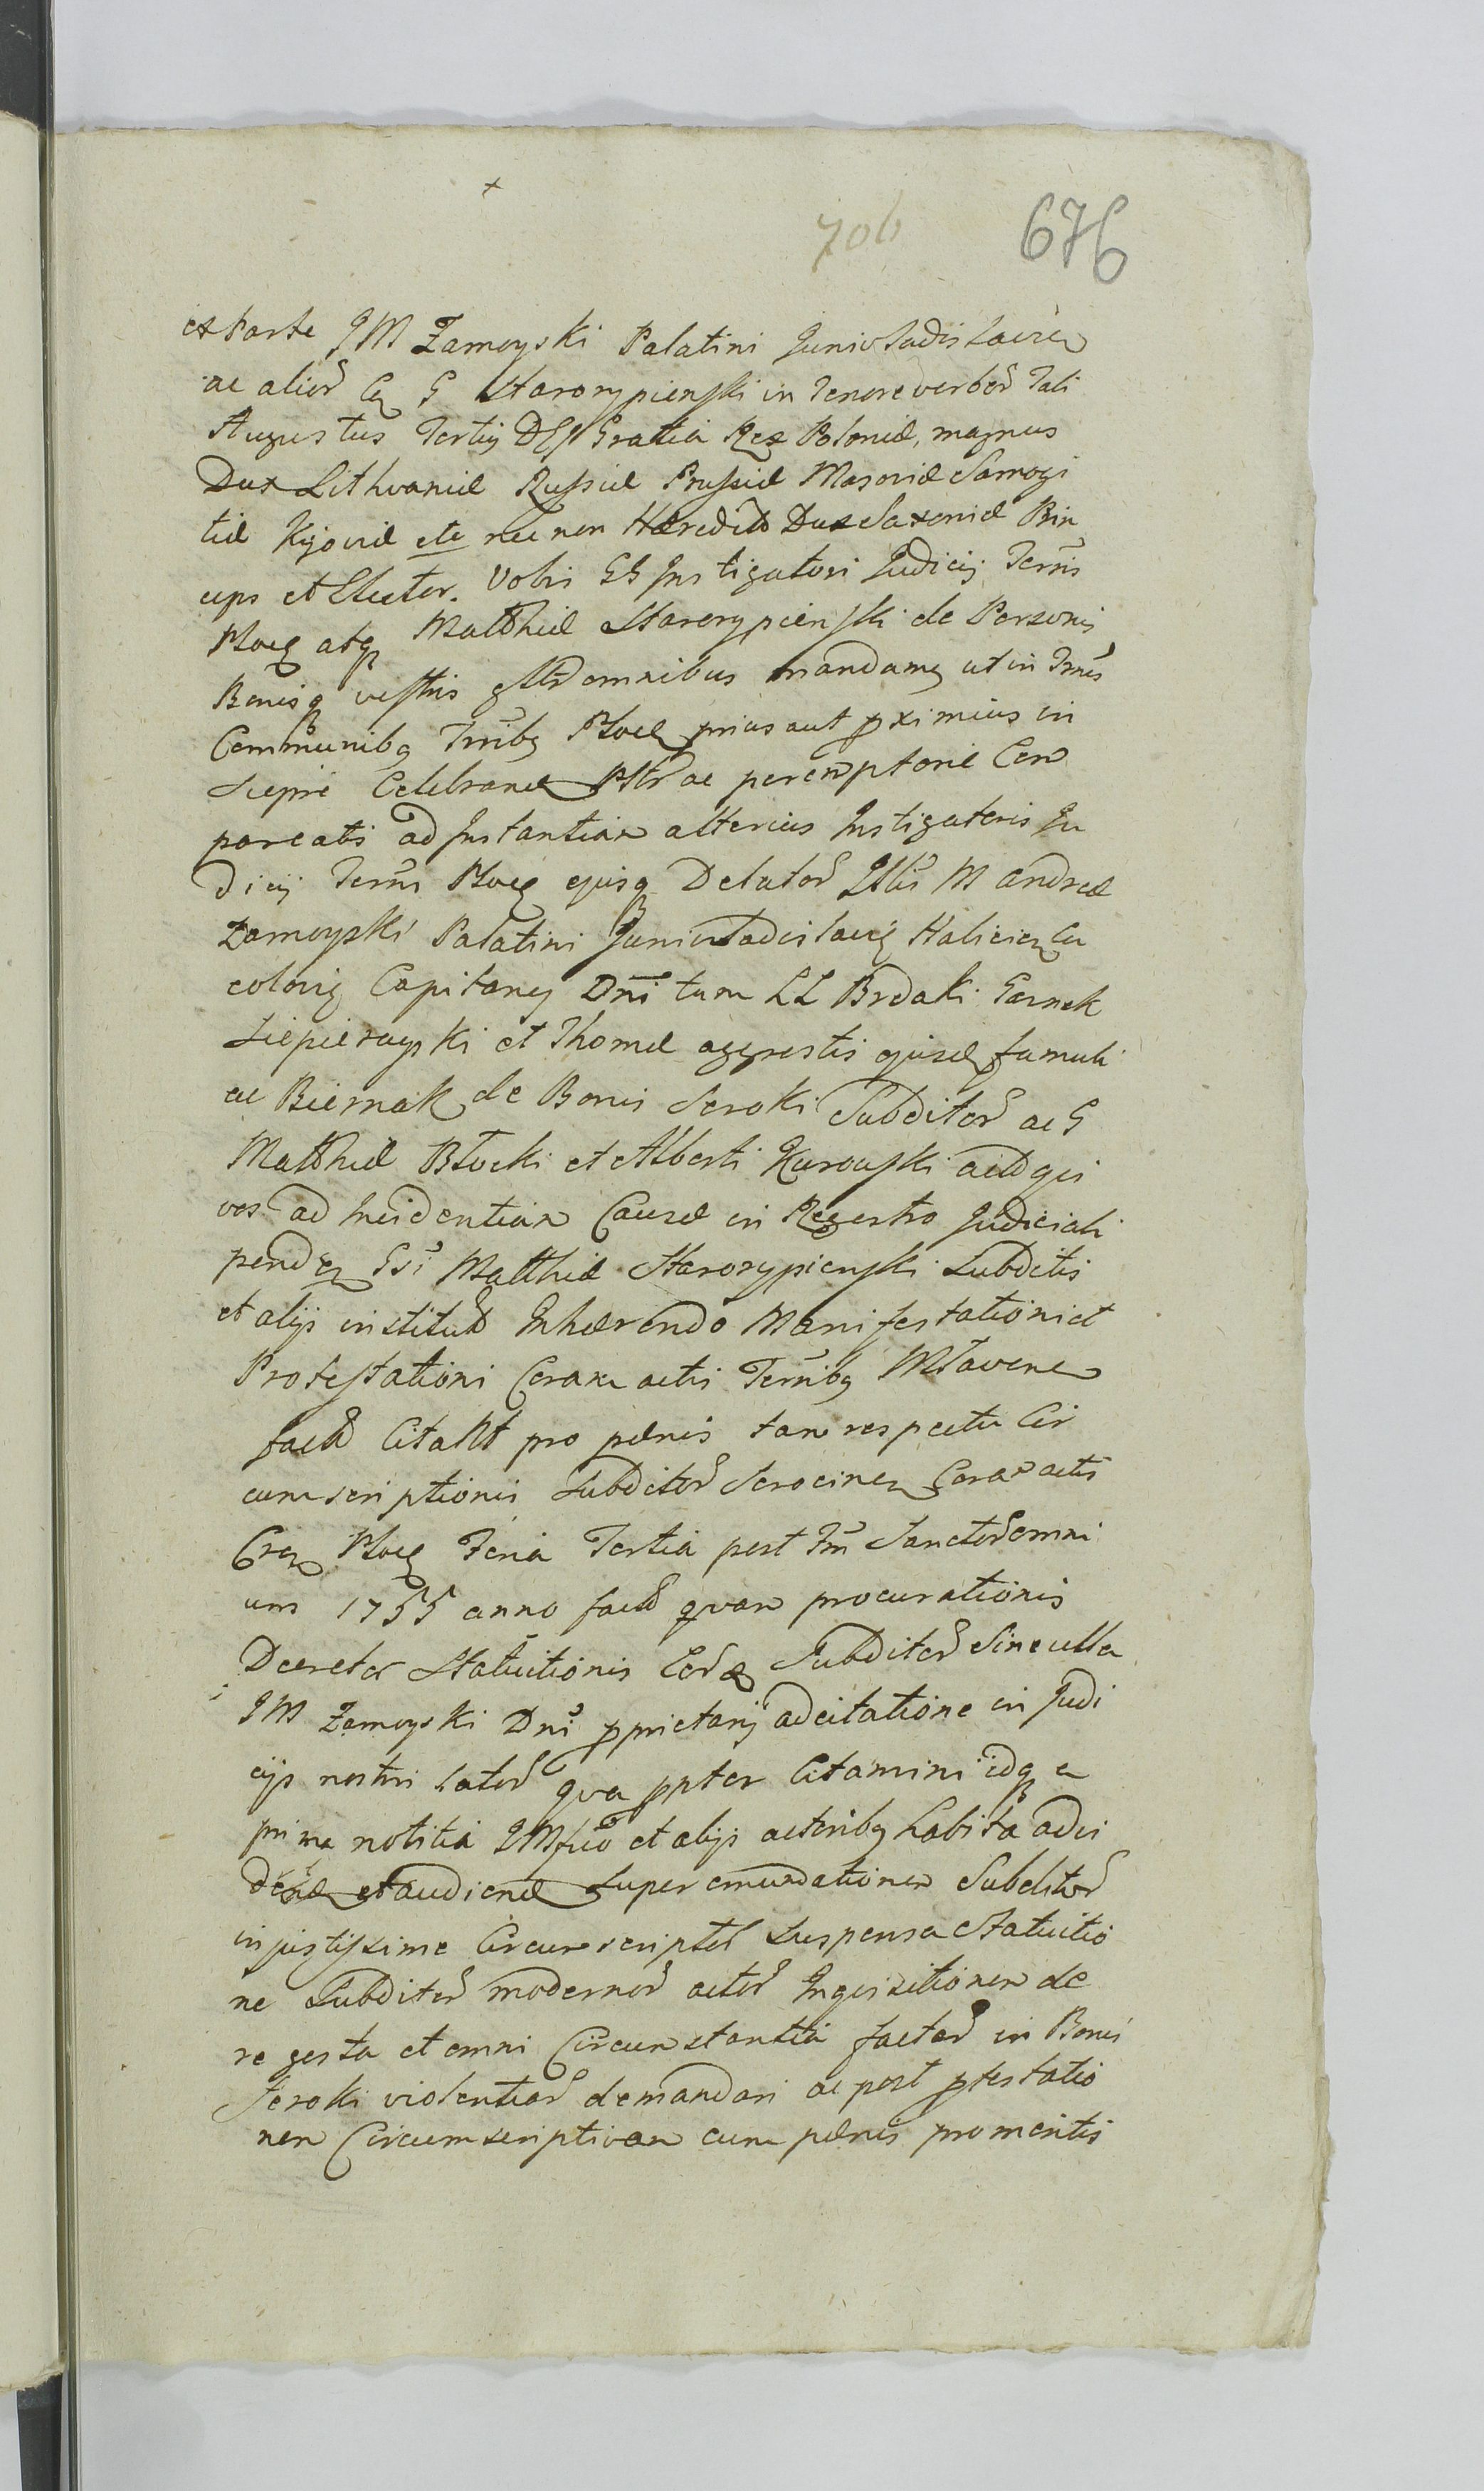 706 676
ex Parte JM Zamoyski Palatini Junivladislavien
ac alior Cq G Starorypienski in Tenore verbor Tali
Augustus Tertius DEI Gratia Rex Poloniæ, magnus
Dux Lithvaniæ Russiæ Prussiæ Masoviæ Samogi
tiæ Kijoviæ etc nec non Hæredit Dux Saxoniæ Prin
ceps et Elector. Vobis GG Instigatori Judicij Terris
Plocen atq Matthiæ Starorypienski de Personis
Bonisq vestris omnibus mandamus ut in Trmis
Communibq Trribq Plocen prius aut pximius in
Siepre Celebran ac peremptorie Com
pareatis ad Instantiam alterius Instigatoris Ju
dicij Terris Plocen ejusq Delator Illis M Andreæ
Zamoyski Palatini Junivladislavien Halicien
Capitanej Dni tum LL Brdaki Garnek
et Thomæ agrestis ejusd famuli
ac Biernak de Bonis Seroki Subditor ac G
Matthiæ Błocki et Alberti Kurowski qui
vos ad Incidentiam Causæ in Regestro Judiciali
penden Gsi Matthiæ Starorypienski Subditis
et alijs institut Inhærendo Manifestationi et
Protestationi Coram actis Terribq Mlaven
fact Citant pro pænis tam respectu Cir
cumscriptionis Subditor Serocinen Coram actis
Plocen Feria Tertia post Fm Sanctor omni
um 1755 anno fact quam procurationis
Decretor Statuitionis Eord Subditor Sine ulla
JM Zamoyski Dni pprietarij adcitatione in Judi
cijs nostri lator qva ppter Citamini idq a
prima notitia et alijs actoribq habita
et audiend Super emundationem Subditor
injustissime Circumscriptor Suspensa Statuitio
ne Subditor modernor actor Inquisitionem de
re gesta et omni Circumstantia factor in Bonis
Seroki violentiar demandari ac post ptestatio
nem Circumscriptivam cum pænis promeritis